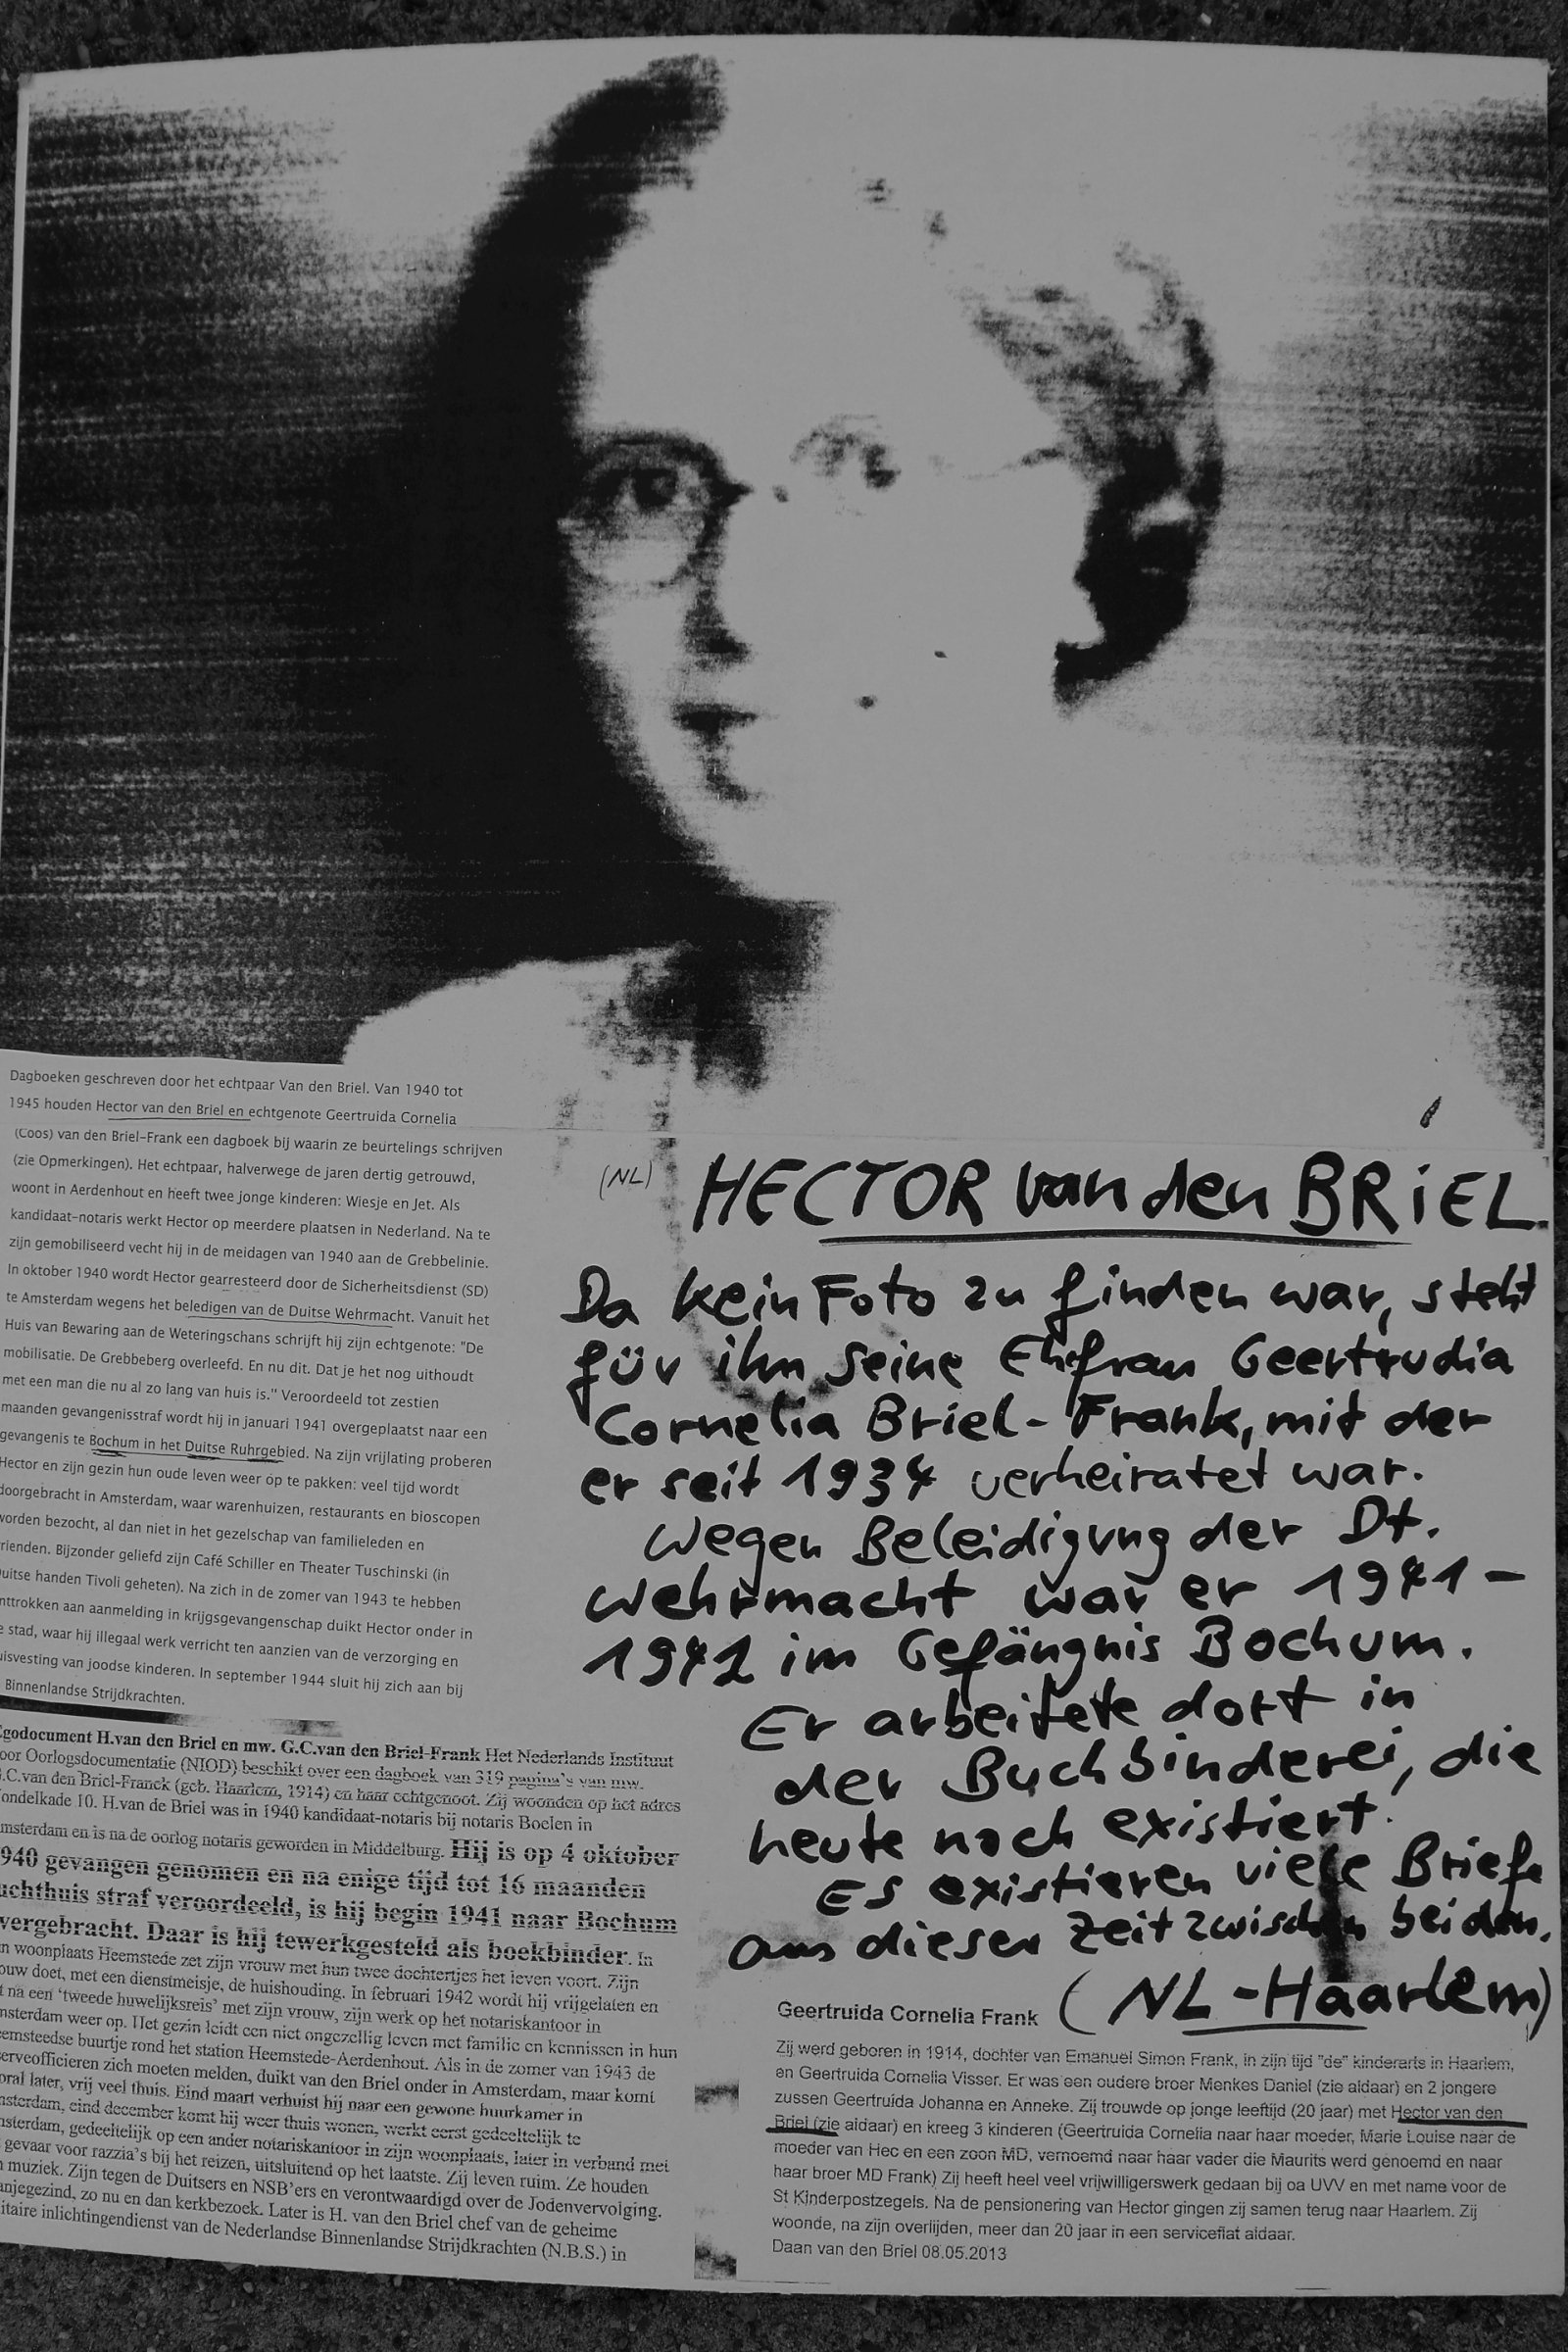 Dagboeken geschreven door het echtpaar Van den Briel. Van 1940 tot
1945 houden Hector van den Briel en echtgenote Geertruida Cornelia
(Coos) van den Briel-Frank een dagboek bij waarin ze beurtelings schrijven
(zie Opmerkingen). Het echtpaar, halverwege de jaren dertig getrouwd,
woont in Aerdenhout en heeft twee jonge kinderen: Wiesje en Jet. Als
kandidaat-notaris werkt Hector op meerdere plaatsen in Nederland. Na te
zijn gemobiliseerd vecht hij in de meidagen van 1940 aan de Grebbelinie.
In oktober 1940 wordt Hector gearresteerd door de Sicherheitsdienst (SD)
te Amsterdam wegens het beledigen van de Duitse Wehrmacht. Vanuit het
Huis van Bewaring aan de Weteringschans schrijft hij zijn echtgenote: "De
mobilisatie. De Grebbeberg overleefd. En nu dit. Dat je het nog uithoudt
met een man die nu al zo lang van huis is." Veroordeeld tot zestien
maanden gevangenisstraf wordt hij in januari 1941 overgeplaatst naar een
gevangenis te Bochum in het Duitse Ruhrgebied. Na zijn vrijlating proberen
Hector en zijn gezin hun oude leven weer op te pakken: veel tijd wordt
doorgebracht in Amsterdam, waar warenhuizen, restaurants en bioscopen
worden bezocht, al dan niet in het gezelschap van familieleden en
rienden. Bijzonder geliefd zijn Café Schiller en Theater Tuschinski (in
uitse handen Tivoli geheten). Na zich in de zomer van 1943 te hebben
nttrokken aan aanmelding in krijgsgevangenschap duikt Hector onder in
e stad, waar hij illegaal werk verricht ten aanzien van de verzorging en
uisvesting van joodse kinderen. In september 1944 sluit hij zich aan bij
Binnenlandse Strijdkrachten.
(NL) HECTOR van den BRiEL
Da kein Foto zu finden war, steht
für ihn seine Ehefrau Geertrudia
Cornelia Briel-Frank, mit der
er seit 1934 verheiratet war.
Wegen Beleidigung der Dt.
Wehrmacht war er 1941-
1942 im Gefängnis Bochum.
Er arbeitete dort in
der Buchbinderei, die
heute noch existiert.
Es existieren viele Briefe
aus dieser Zeit zwischen beiden.
(NL-Haarlem)
Egodocument H.van den Briel en mw. G.C.van den Briel-Frank Het Nederlands Instituut
oor Oorlogsdocumentatie (NIOD) beschikt over een dagboek van 319 pagina's van mw.
G.C.van den Briel-Franck (geb. Haarlem, 1914) en haar echtgenoot. Zij woonden op het adres
ondelkade 10. H.van de Briel was in 1940 kandidaat-notaris bij notaris Boelen in
msterdam en is na de oorlog notaris geworden in Middelburg. Hij is op 4 oktober
940 gevangen genomen en na enige tijd tot 16 maanden
uchthuis straf veroordeeld, is hij begin 1941 naar Bochum
vergebracht. Daar is hij tewerkgesteld als boekbinder. In
n woonplaats Heemstede zet zijn vrouw met hun twee dochtertjes het leven voort. Zijn
ouw doet, met een dienstmeisje, de huishouding. In februari 1942 wordt hij vrijgelaten en
t na een 'tweede huwelijksreis' met zijn vrouw, zijn werk op het notariskantoor in
nsterdam weer op. Het gezin leidt een niet ongezellig leven met familie en kennissen in hun
emsteedse buurtje rond het station Heemstede-Aerdenhout. Als in de zomer van 1943 de
erveofficieren zich moeten melden, duikt van den Briel onder in Amsterdam, maar komt
oral later, vrij veel thuis. Eind maart verhuist hij naar een gewone huurkamer in
nsterdam, eind december komt hij weer thuis wonen, werkt eerst gedeeltelijk te
nsterdam, gedeeltelijk op een ander notariskantoor in zijn woonplaats, later in verband met
gevaar voor razzia's bij het reizen, uitsluitend op het laatste. Zij leven ruim. Ze houden
n muziek. Zijn tegen de Duitsers en NSB'ers en verontwaardigd over de Jodenvervolging.
anjegezind, zo nu en dan kerkbezoek. Later is H. van den Briel chef van de geheime
itaire inlichtingendienst van de Nederlandse Binnenlandse Strijdkrachten (N.B.S.) in
Geertruida Cornelia Frank
Zij werd geboren in 1914, dochter van Emanuel Simon Frank, in zijn tijd "de" kinderarts in Haarlem,
en Geertruida Cornelia Visser. Er was een oudere broer Menkes Daniel (zie aldaar) en 2 jongere
zussen Geertruida Johanna en Anneke. Zij trouwde op jonge leeftijd (20 jaar) met Hector van den
Briel (zie aldaar) en kreeg 3 kinderen (Geertruida Cornelia naar haar moeder, Marie Louise naar de
moeder van Hec en een zoon MD, vernoemd naar haar vader die Maurits werd genoemd en naar
haar broer MD Frank) Zij heeft heel veel vrijwilligerswerk gedaan bij oa UVV en met name voor de
St Kinderpostzegels. Na de pensionering van Hector gingen zij samen terug naar Haarlem. Zij
woonde, na zijn overlijden, meer dan 20 jaar in een serviceflat aldaar.
Daan van den Briel 08.05.2013